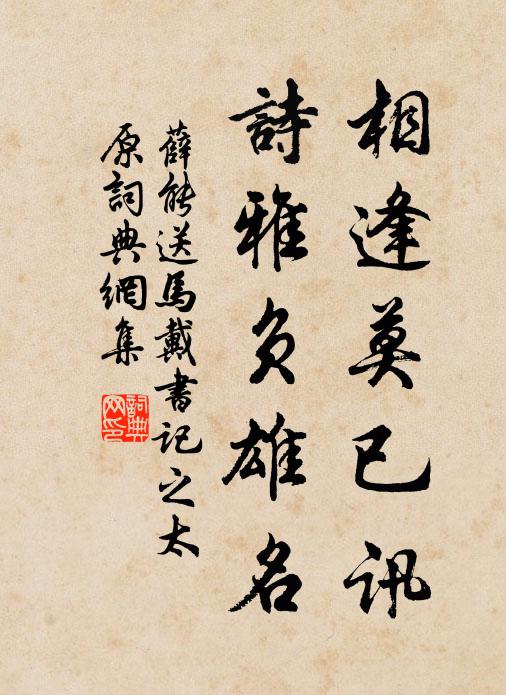 相逢莫已訊
詩雅負雄名
薛能送馬戴書記之太
原詞典網集
詞典
网印